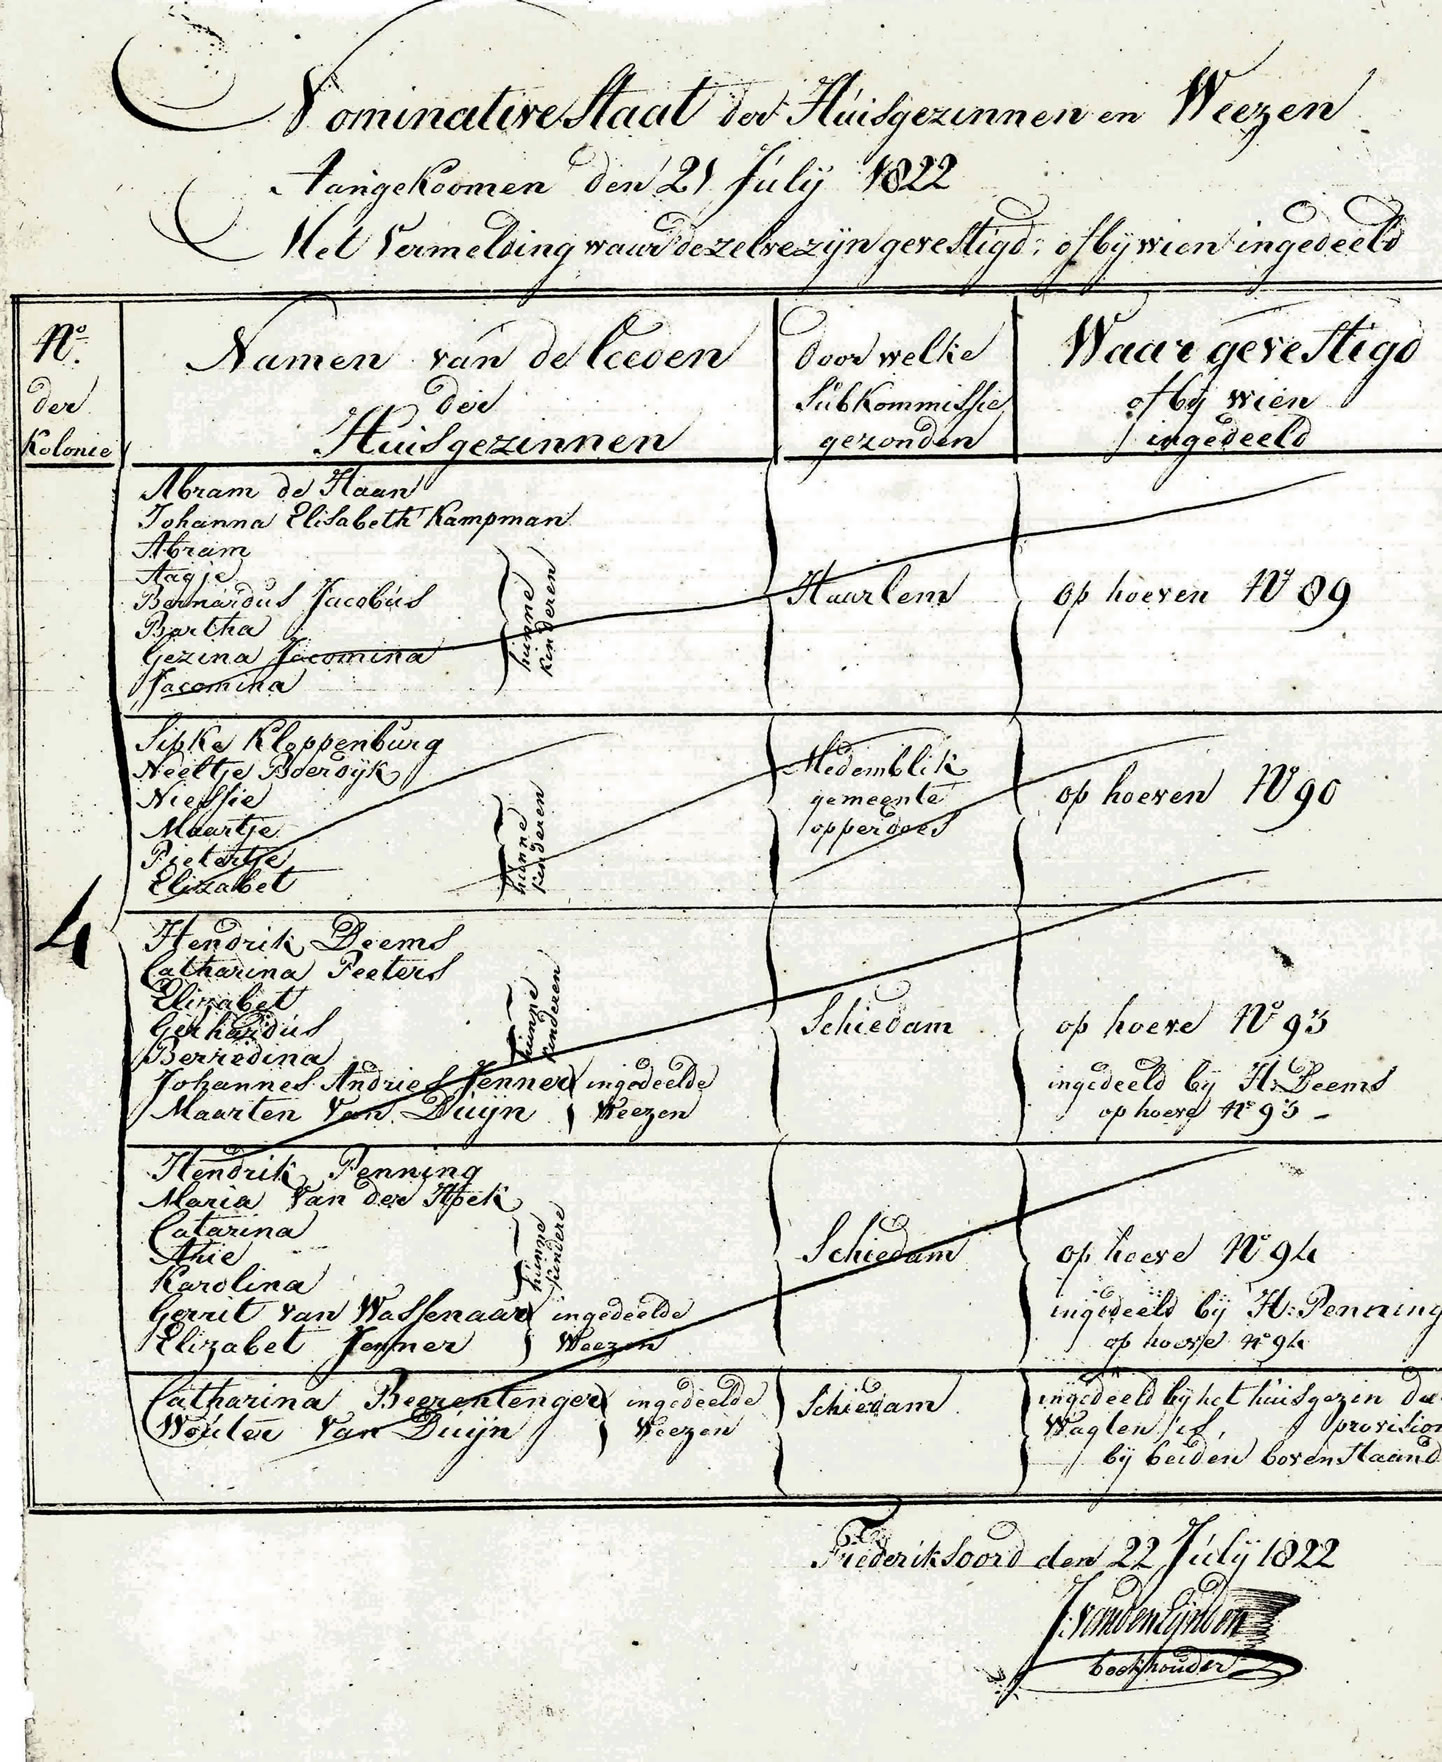 Nominative Staat der Huisgezinnen en Weezen
Aangekoomen den 21 Julÿ 1822
Met Vermelding waar dezelve zijn gevestigd; of bij wien ingedeeld
No. der Kolonie
Namen van de Leeden der Huisgezinnen
door welke Subkommissie gezonden
Waar gevestigd of bij wien ingedeeld
4
Abram de Haan
Johanna Elisabeth Kampman
Abram
Aagje
Barnardus Jacobus
Bartha
Gezina Jacomina
Jacomina
hunne kinderen
Haarlem
op hoeven No 89
Sipke Kloppenburg
Neeltje Boerdijk
Niessie
Maartje
Pietertje
Elizabet
hunne kinderen
Medemblik
gemeente
opperdoes
op hoeven No 90
Hendrik Deems
Catharina Peeters
Elizabet
Gerhardus
Berredina
hunne kinderen
Johannes Andries Jenner
Maarten Van Duijn
ingedeelde
Weezen
Schiedam
op hoeve No 93
ingedeeld bij H: Deems
op hoeve No 93 -
Hendrik Penning
Maria Van der Hoek
Catarina
Ahie
Karolina
hunne kindere
Gerrit van Wassenaar
Elizabet Jenner
ingedeelde
Weezen
Schiedam
op hoeve No 94
ingedeeld bij H: Penning
op hoeve No 94
Catharina Beerentenger
Wouter Van Duijn
ingedeelde
Weezen
Schiedam
ingedeeld bij het huisgezin
provision
bij beiden bovenstaand
Frederiksoord den 22 Julÿ 1822
boekhouder